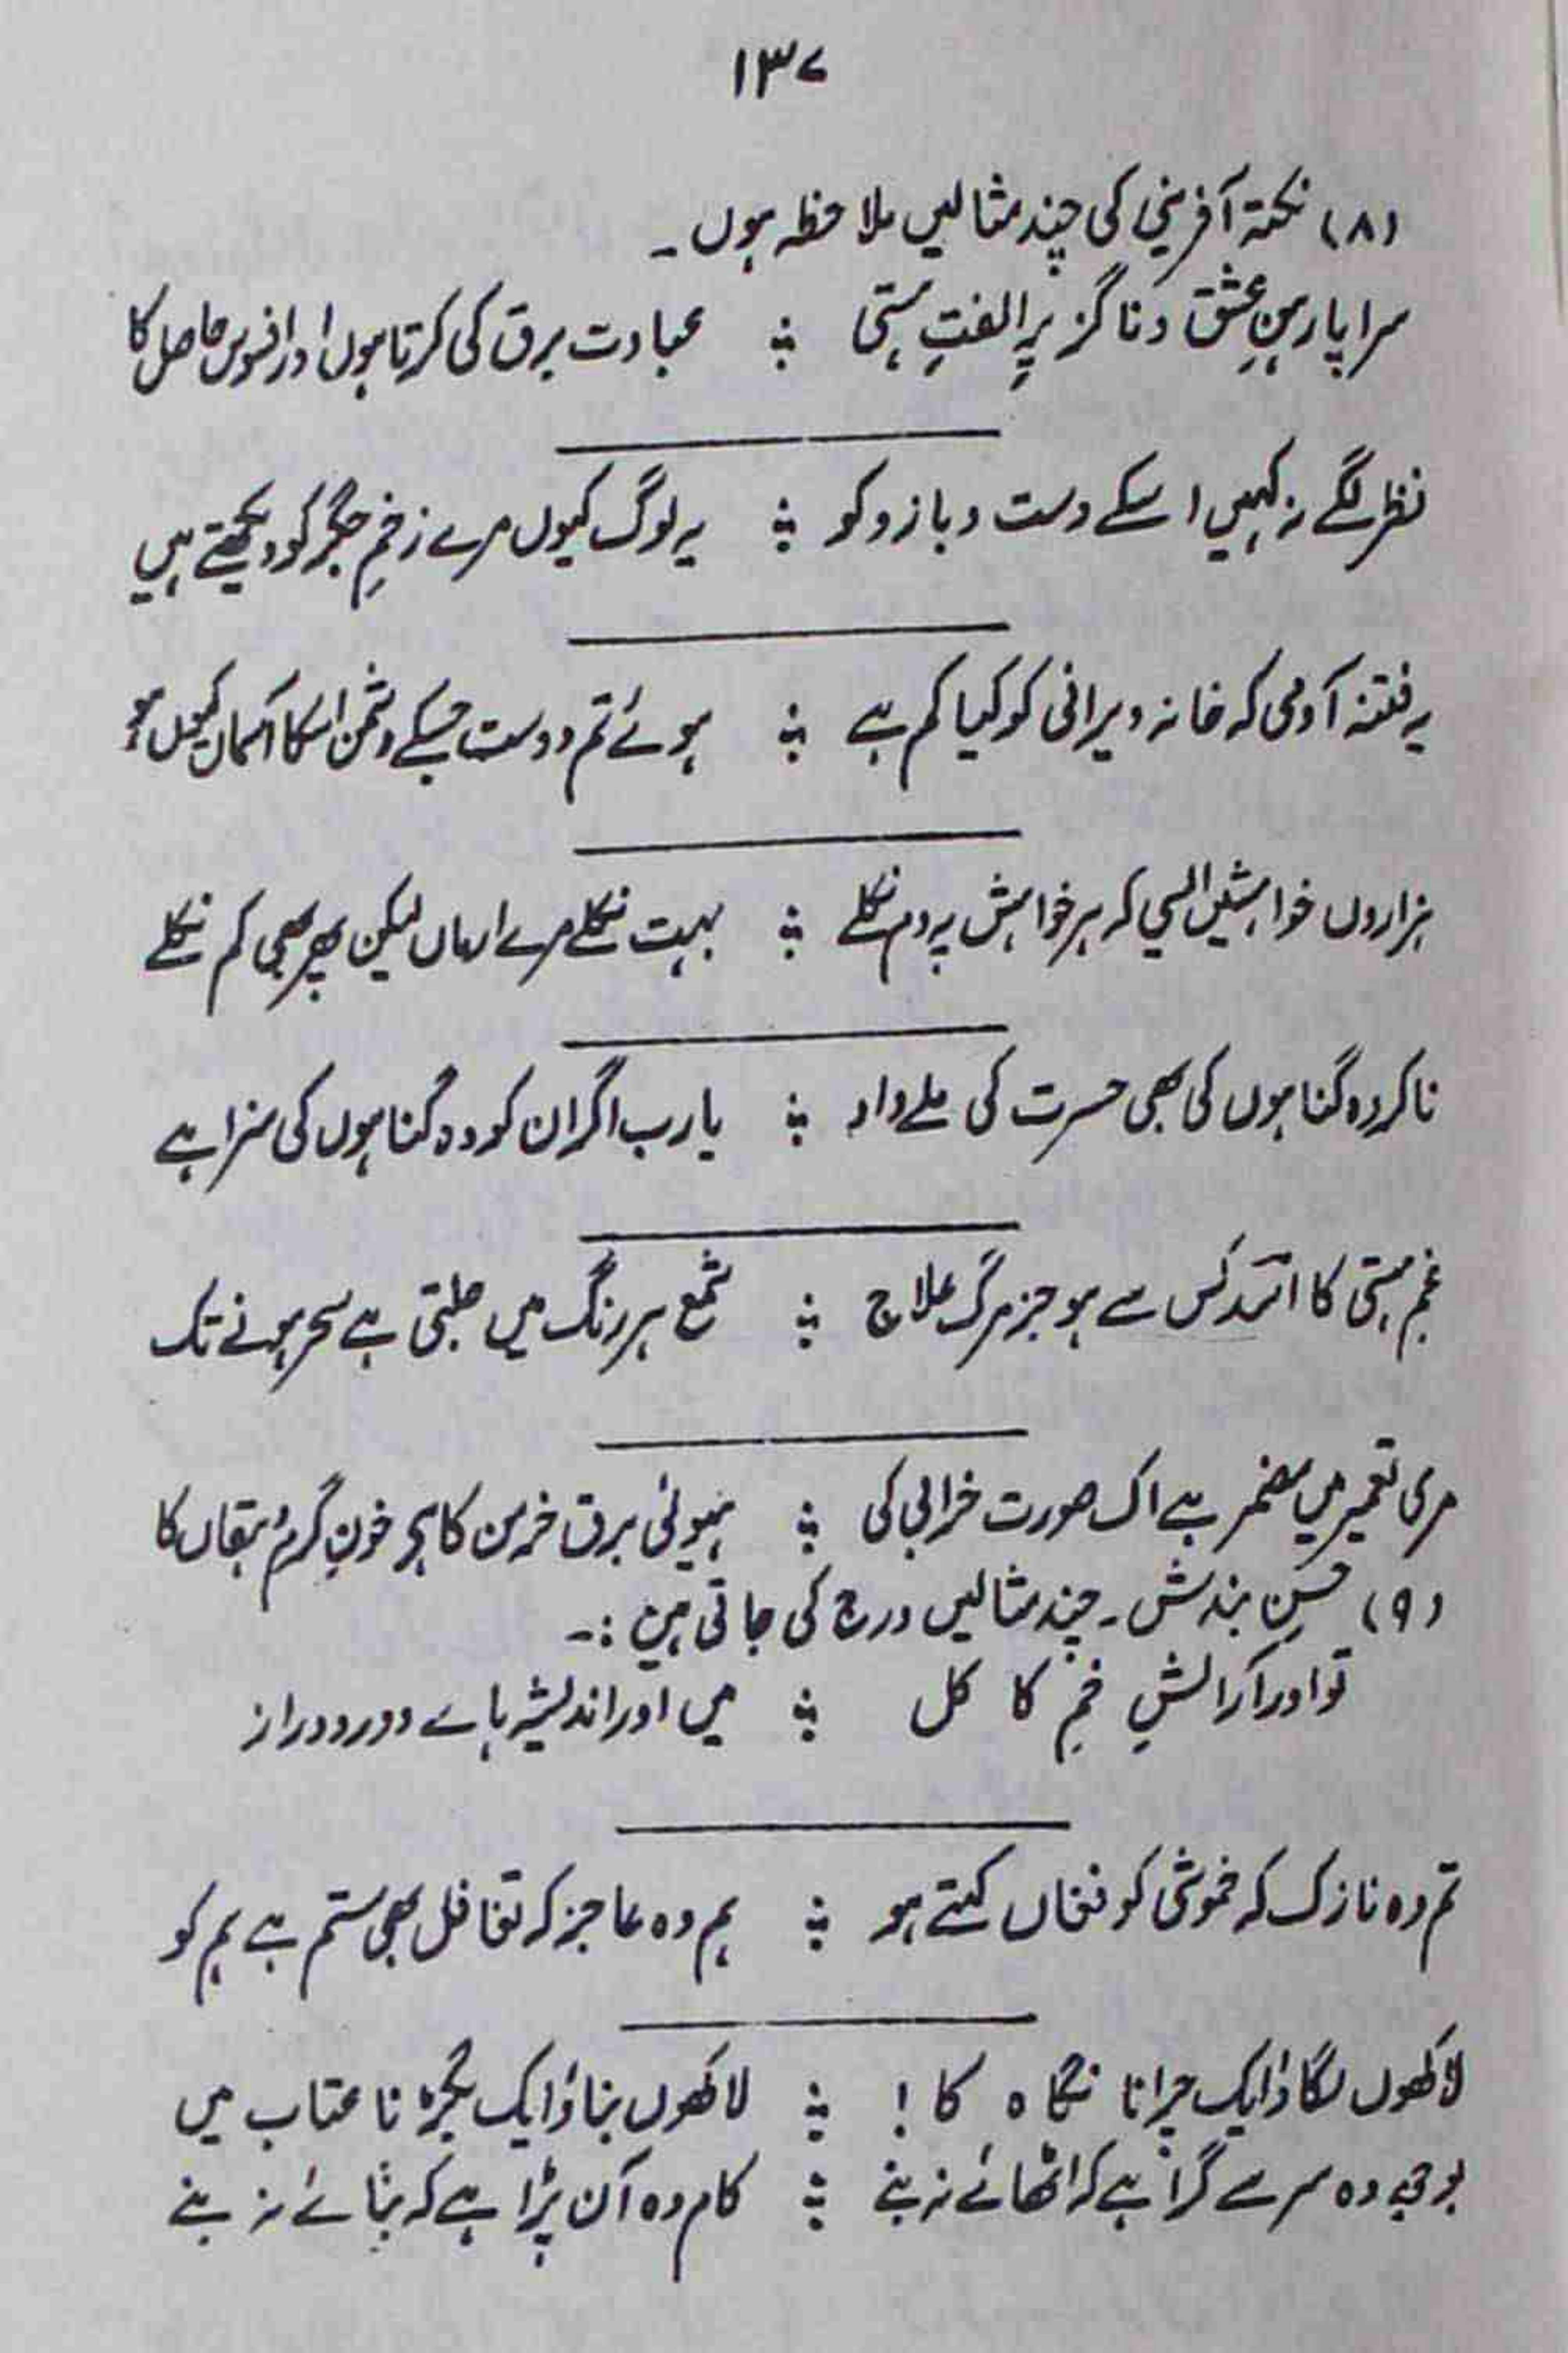 ۱۳۷
(۸) نکتہ آفرینی کی چند مثالیں ملاحظہ ہوں۔
سراپا رہنِ عشق و ناگزیرِ الفتِ ہستی ؞ عبادت برق کی کرتا ہوں اور افسوس حاصل کا
نظر لگے نہ کہیں اسکے دست و بازو کو ؞ یہ لوگ کیوں مرے زخمِ جگر کو دیکھتے ہیں
یہ فتنہ آدمی کہ خانہ ویرانی کو کیا کم ہے ؞ ہوئے تم دوست جسکے دشمن اسکا آسماں کیوں ہو
ہزاروں خواہشیں ایسی کہ ہر خواہش پہ دم نکلے ؞ بہت نکلے مرے ارماں لیکن پھر بھی کم نکلے
ناکردہ گناہوں کی بھی حسرت کی ملے داد ؞ یارب اگر ان کردہ گناہوں کی سزا ہے
غمِ ہستی کا اسد کس سے ہو جز مرگ علاج ؞ شمع ہر رنگ میں جلتی ہے سحر ہونے تک
مری تعمیر میں مضمر ہے اک صورت خرابی کی ؞ ہیولیٰ برق خرمن کا ہے خونِ گرم دہقاں کا
(۹) حسنِ بندش۔ چند مثالیں درج کی جاتی ہیں :۔
تو اور آرائشِ خمِ کا کل ؞ میں اور اندیشہ ہاے دور و دراز
تم وہ نازک کہ خموشی کو فغاں کہتے ہو ؞ ہم وہ عاجز کہ تغافل بھی ستم ہے ہم کو
لاکھوں لگاؤ ایک چرانا نگاہ کا ! ؞ لاکھوں بناؤ ایک بگڑنا عتاب میں
بوجھ وہ سر سے گرا ہے کہ اٹھائے نہ بنے ؞ کام وہ آن پڑا ہے کہ بنائے نہ بنے